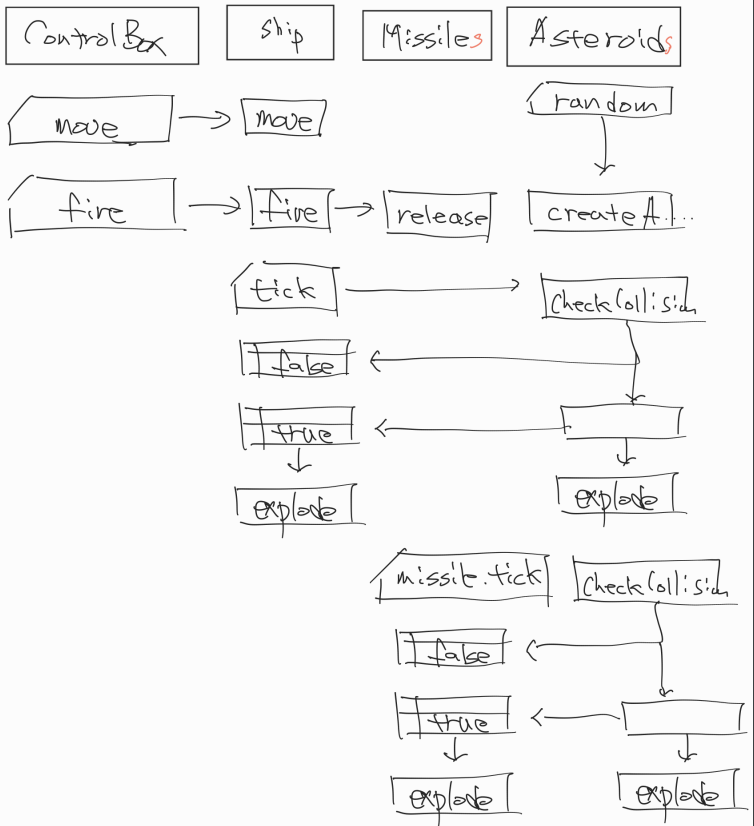 ControlBox
Ship
Missiles
Asteroids
move
move
random
fire
fire
release
createA....
tick
CheckCollision
false
true
explode
explode
missile.tick
CheckCollision
false
true
explode
explode